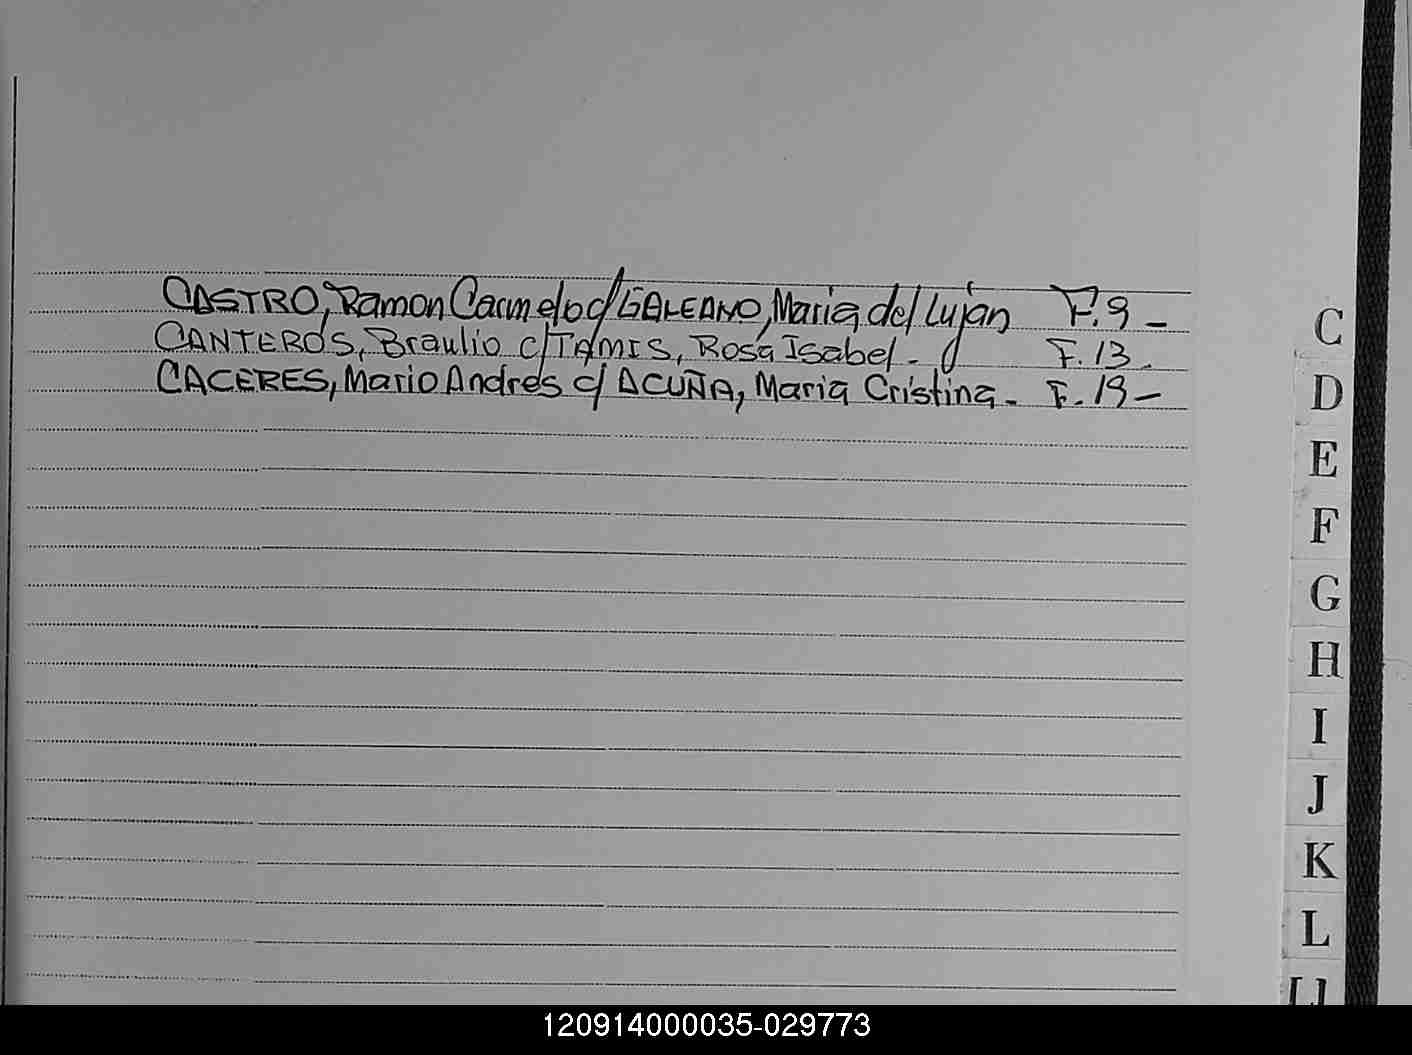 CASTRO, Ramon Carmelo c/ GALEANO, Maria del Luján F. 9 -
CANTEROS, Braulio c/ TAMIS, Rosa Isabel - F. 13 -
CACERES, Mario Andrés c/ ACUÑA, Maria Cristina - F. 19 -
C
D
E
F
G
H
I
J
K
L
120914000035-029773